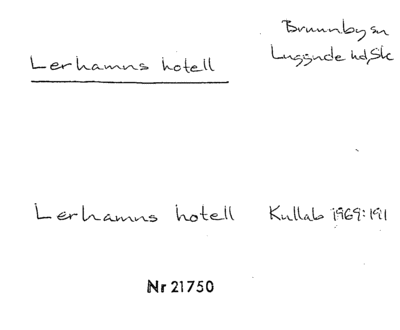 Brunnby sn
Lerhamns hotell
Luggude hd, Sk
Lerhamns hotell Kullab 1969:191
Nr 21750